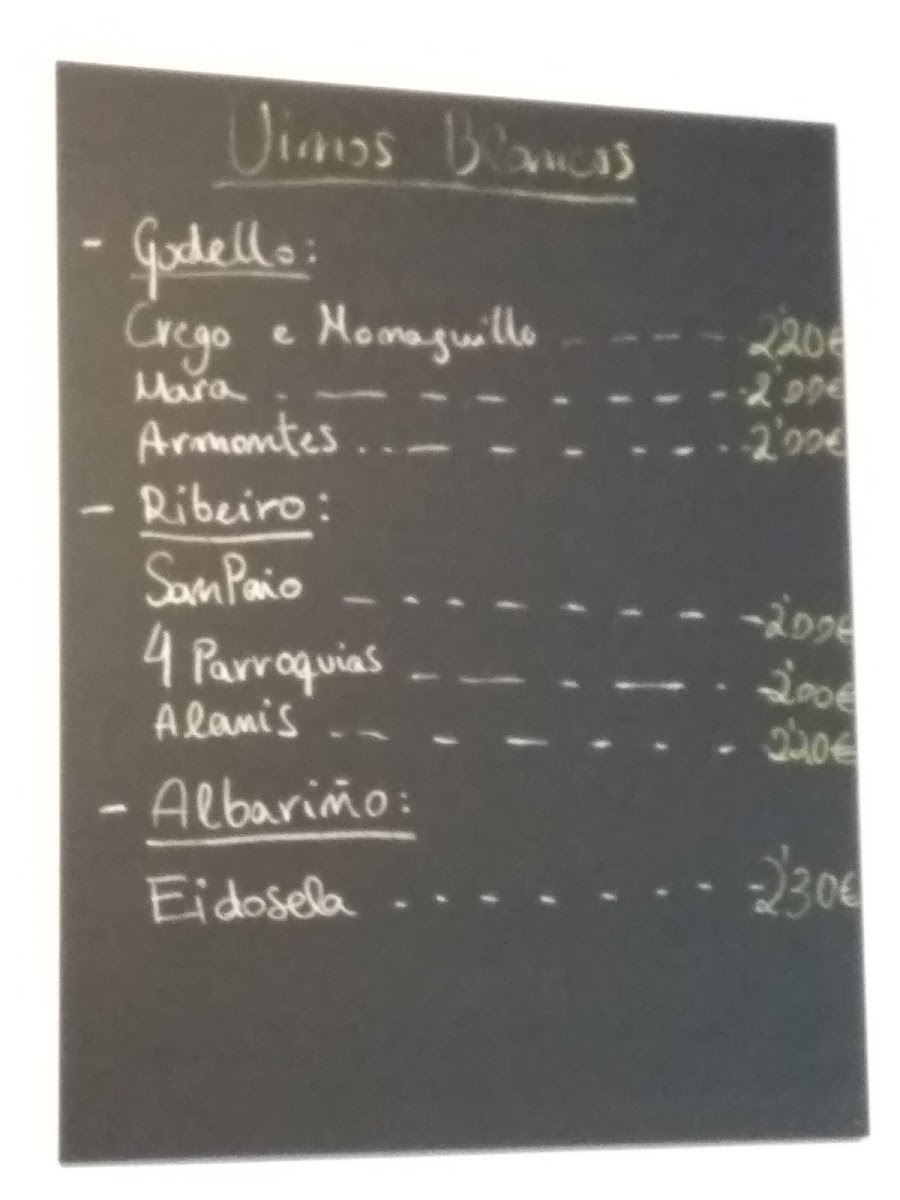 Vinos Blancos
- Godello:
Crego e Monaguillo - - - - 2'20€
Mara . - - - - - - - 2'00€
Armontes ..- - - - - - . 2'00€
- Ribeiro:
SanPaio - - - - - - - - 2'00€
4 Parroquias - - - - . - 2'00€
Alanis - - - - - - - - 2'20€
- Albariño:
Eidosela . . - - - - - - - 2'30€